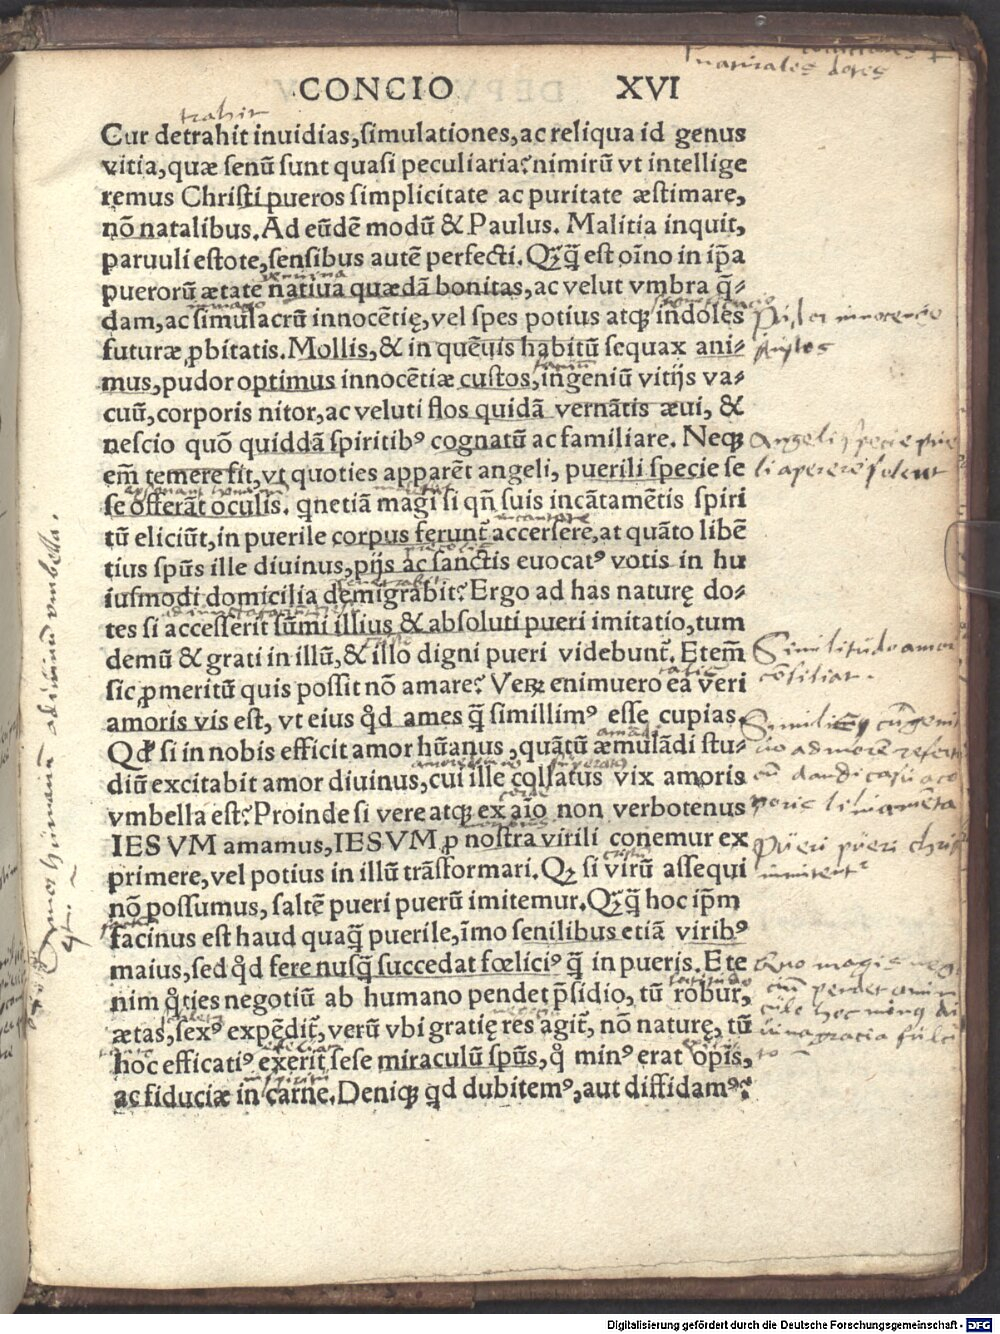 naturales dotes
CONCIO XVI
trahit
Cur detrahit inuidias, simulationes, ac reliqua id genus
vitia, quæ senū sunt quasi peculiaria? nimirū vt intellige
remus Christi pueros simplicitate ac puritate æstimare,
nō natalibus. Ad eūdē modū & Paulus. Malitia inquit,
paruuli estote, sensibus autē perfecti. Qꝫq̄ est oīno in ip̄a
puerorū ætate natiua quædā bonitas, ac velut vmbra q̄⸗
dam, ac simulacrū innocētię, vel spes potius atqꝫ indoles
futuræ ꝓbitatis. Mollis, & in quēuis habitū sequax ani⸗
mus, pudor optimus innocētiæ custos, ingeniū vitijs va⸗
cuū, corporis nitor, ac veluti flos quidā vernātis æui, &
nescio quō quiddā spiritibꝰ cognatū ac familiare. Neqꝫ
em̄ temere fit, vt quoties apparēt angeli, puerili specie se
se offerāt oculis. qnetiā magi si qn̄ suis incātamētis spiri
tū eliciūt, in puerile corpus ferunt̄ accersere, at quāto libē
tius spūs ille diuinus, pijs ac sanctis euocatꝰ votis in hu
iusmodi domicilia demigrabit? Ergo ad has naturę do⸗
tes si accesserit sūmi illius & absoluti pueri imitatio, tum
demū & grati in illū, & illo digni pueri videbunt̄. Etem̄
sic ꝓmeritū quis possit nō amare? Veꝝ enimuero ea veri
amoris vis est, vt eius qd̄ ames q̄ simillimꝰ esse cupias.
Qd̄ si in nobis efficit amor hūanus, quātū æmulādi stu⸗
diū excitabit amor diuinus, cui ille collatus vix amoris
vmbella est? Proinde si vere atqꝫ ex aīo non verbotenus
IESVM amamus, IESVM ꝓ nostra virili conemur ex
primere, vel potius in illū trāsformari. Qꝫ si virū assequi
nō possumus, saltē pueri puerū imitemur. Qꝫq̄ hoc ipm̄
facinus est haud quaq̄ puerile, īmo senilibus etiā viribꝰ
maius, sed qd̄ fere nusq̄ succedat fœliciꝰ q̄ in pueris. Ete
nim q̊ties negotiū ab humano pendet p̄sidio, tū robur,
ætas, sexꝰ expēdit̄, verū vbi gratię res agit̄, nō naturę, tū
hoc efficatiꝰ exerit sese miraculū spūs, q̊ minꝰ erat opis,
ac fiduciæ in carne. Deniqꝫ qd dubitemꝰ, aut diffidamꝰ?
Angeli specie pue
li aperere solent
Similitudo amor
cōsiliat.
Amor humanū ad diuinū vmbella.
Digitalisierung gefördert durch die Deutsche Forschungsgemeinschaft - DFG